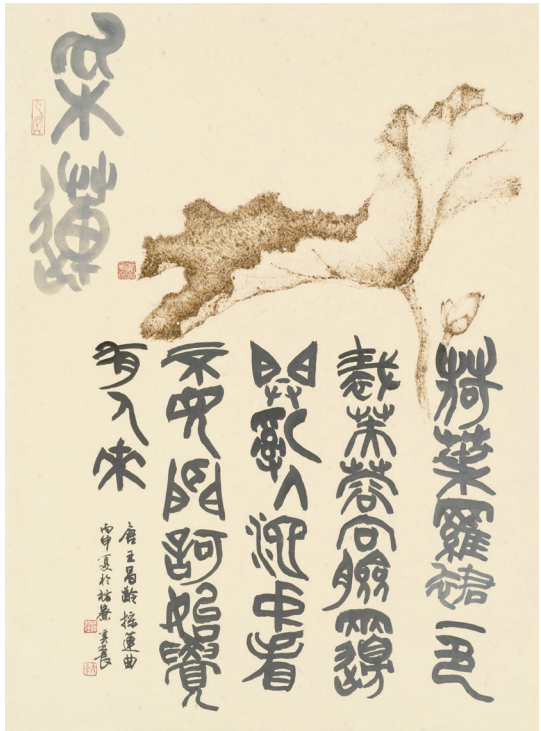 采蓮
荷葉羅裙一色
裁芙蓉向臉兩邊
開亂入池中看
不見聞訶始覺
有人來
唐王昌齡採蓮曲
丙申夏於